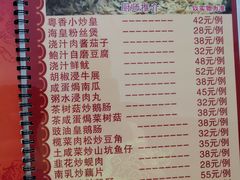 厨师推介
以实物为准
粤香小炒皇 42元/例
海皇粉丝煲 32元/例
浇汁肉酱茄子 32元/例
鲍汁自磨豆腐 28元/例
浇汁鲜鱿 48元/例
胡椒浸牛展 52元/例
咸蛋焗南瓜 28元/例
粥水浸肉丸 32元/例
茶树菇炒鹅肠 45元/例
咸蛋焗菜树菇 38元/例
豉油皇鹅肠 45元/例
榄菜肉松炒豆角 32元/例
土咸菜炒山坑鱼仔 38元/例
韭花炒蚬肉 35元/例
南乳炒藕片